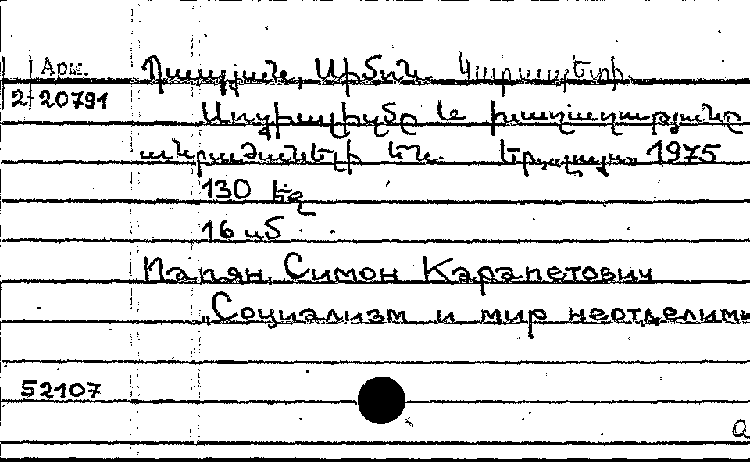 Арм. Պապյան, Սիմոն Կարապետի.
2-20791 Սոցիալիզմը և խաղաղությունը
անբաժանելի են. Երևան 1975
130 էջ
16 սմ
Папян, Симон Карапетович
„Социализм и мир неотделим
52107
а